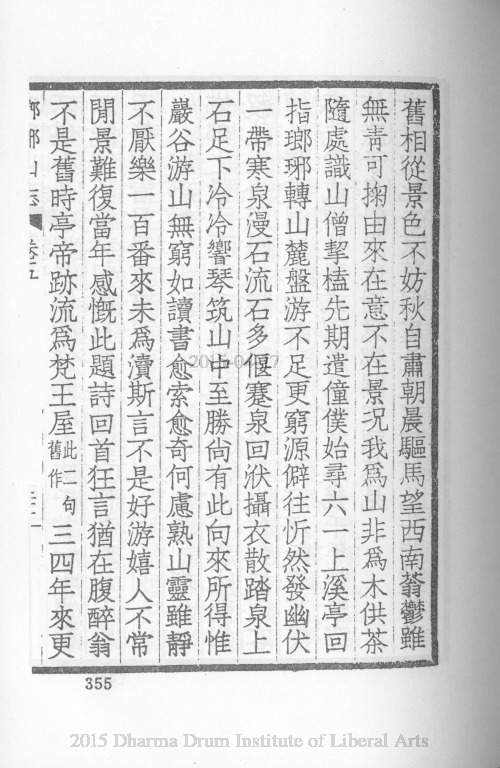 舊相從景色不妨秋自肅朝晨驅馬望西南蓊鬱雖
無靑可掬由來在意不在景況我爲山非爲木供茶
隨處識山僧挈榼先期遣僮僕始尋六一上溪亭回
指瑯琊轉山麓盤游不足更窮源僻往忻然發幽伏
一帶寒泉漫石流石多偃蹇泉回洑攝衣散踏泉上
石足下冷冷響琴筑山中至勝尙有此向來所得惟
巖谷游山無窮如讀書愈索愈奇何慮熟山靈雖靜
不厭樂一百番來未爲瀆斯言不是好游嬉人不常
閒景難復當年感慨此題詩回首狂言猶在腹醉翁
不是舊時亭帝跡流爲梵王屋此二句舊作三四年來更
瑯琊山志 卷五
355
2015 Dharma Drum Institute of Liberal Arts